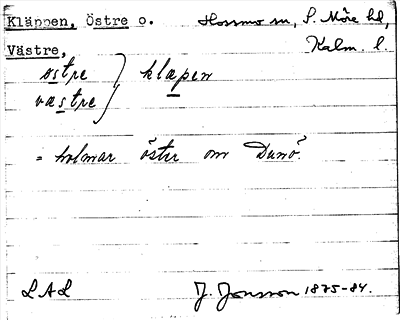 Kläppen, Östre o. Hossmo sn, S. Möre hd,
Västre, Kalm. l.
östre } klapen
vastre
= holmar öster om Dunö.
LAL J. Jonsson 1875-84.